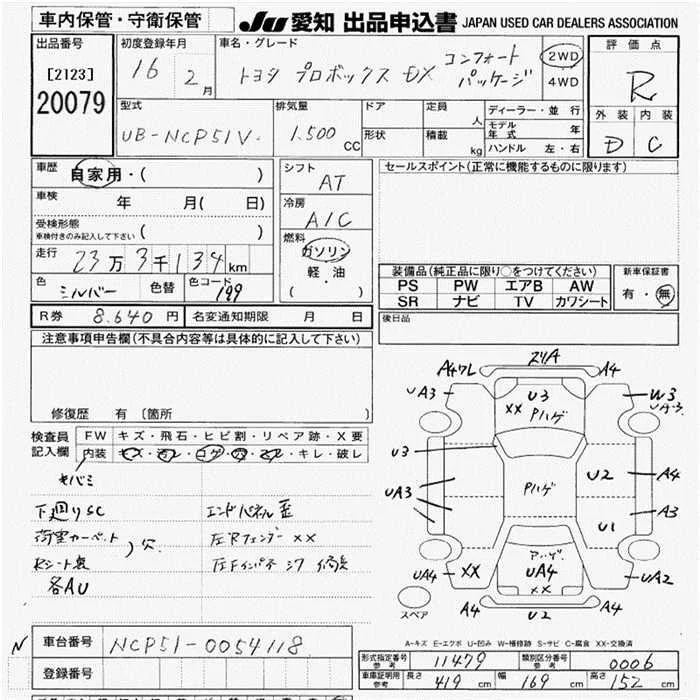 車内保管・守衛保管
JU 愛知 出品申込書 JAPAN USED CAR DEALERS ASSOCIATION
出品番号
[2123]
20079
初度登録年月
16 2月
車名・グレード
トヨタ プロボックス DX コンフォートパッケージ
2WD
4WD
評価点
R
外装 内装
D C
型式
UB-NCP51V
排気量
1.500 CC
ドア
形状
定員 人
積載 kg
ディーラー・並行
モデル年式 年
ハンドル 左・右
車歴
自家用・( )
車検 年 月( 日)
受検形態
車検付きのみ記入して下さい ( )
走行
23万3千134km
色
シルバー
色替
色コード
199
シフト
AT
冷房
A/C
燃料
ガソリン
軽・油
( )
セールスポイント(正常に機能するものに限ります)
装備品(純正品に限り○をつけてください)
PS PW エアB AW
SR ナビ TV カワシート
新車保証書
有・無
R券 8.640円
名変通知期限 月 日
後日品
注意事項申告欄(不具合内容等は具体的に記入して下さい)
修復歴 有 〔箇所 〕
検査員記入欄
FW キズ・飛石・ヒビ割・リペア跡・X要
内装 キズ・汚レ・コゲ・穴・スレ・キレ・破レ
下廻りSC
荷室カーペット
Rシート裏
) 穴
各AU
エンドパネル歪
左Rフェンダー XX
左Fインパネ
A47L
A4
UA3
W3
U3
XX
Pハゲ
U3
Pハゲ
U2
A4
UA3
U1
A3
アハゲ
UA4
XX
UA4
XX
UA2
A4
U2
A4
スペア
A-キズ E-エクボ U-凹み W-補修跡 S-サビ C-腐食 XX-交換済
N
車台番号
NCP51-0054118
登録番号
形式指定番号 参考
11479
類別区分番号 参考
0006
車庫証明用 参考
長さ 419 cm
幅 169 cm
高さ 152 cm